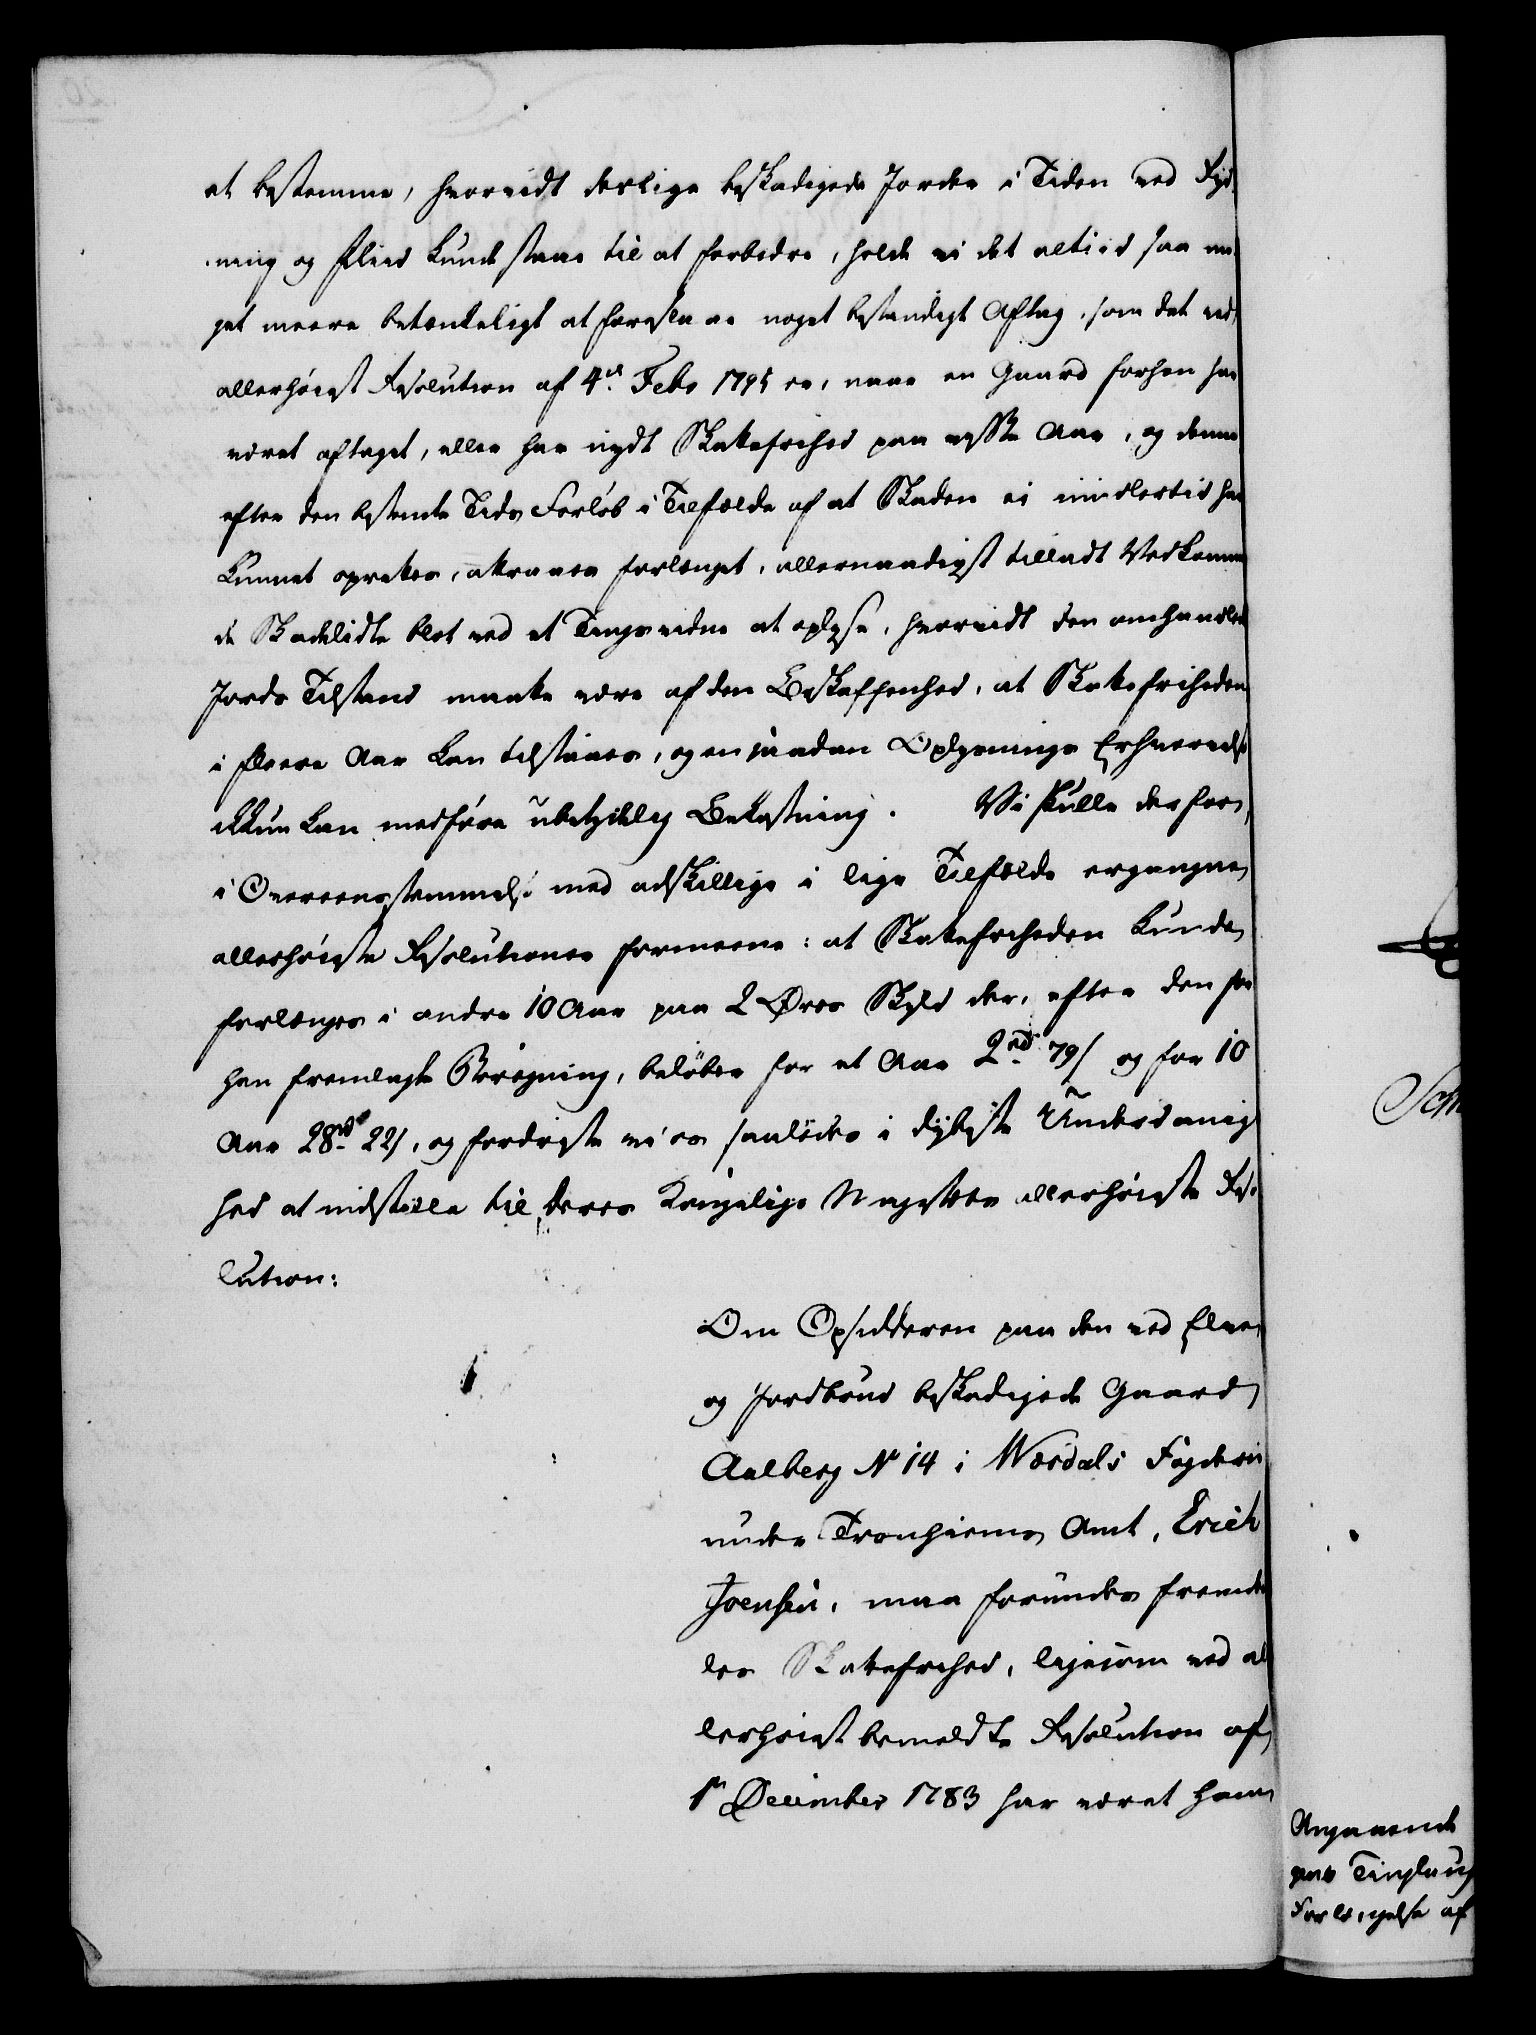 at bestemme, hvorvidt deslige beskadigede Jorder i Tiden ved Ryd¬
ning og Fliid kunde staae til at forbedre, holde vi det altiid saa me¬
get meere betænkeligt at foreslaae noget bestandigt Aftag, som det ved
allerhøiest Resolution af 4de Febr 1795 er, naar en Gaard forhen har
været aftaget, eller har nydt Skatefrihed paa visse Aar, og denne
efter den bestemte Tids Forløb i Tilfælde af at Skaden ei imidlertid har
kunnet oprettes, attraaes forlænget, allernaadigst tilladt Vedkommen
de Skadelidte blot ved et Tingsvidne at oplyse, hvorvidt den omhandlede
Jords Tilstand maatte være af den Beskaffenhed, at Skatefriheden
i fleere Aar kan tilstaaes, og en saadan Oplysnings Erhvervelse
ikkun kan medføre ubetydelig Bekostning. Vi skulle derfor
i Overeensstemmelse med adskillige i lige Tilfælde ergangne
allerhøieste Resolutioner formeene: at Skatefriheden kunde
forlænges i andre 10 Aar paa 2 Øres Skyld der, efter den for
hen fremlagte Beregning, beløber for et Aar 2rd 79s og for 10
Aar 28rd 22s, og fordriste vi os saaledes i dybeste Underdanig
hed at indstille til Deres Kongelige Majestæts allerhøieste Reso
lution:
Om Opsidderen paa den ved Elve
og Jordbrud beskadigede Gaard
Aalberg No 14 i Værdals Fogderi
under Tronhiems Amt, Erich
Joensen, maa forundes fremde
les Skatefrihed, ligesom ved al
lerhøist bemeldte Resolution af
1te December 1783 har været ham
Angaaende
paa Tinglaug
Forlængelse af